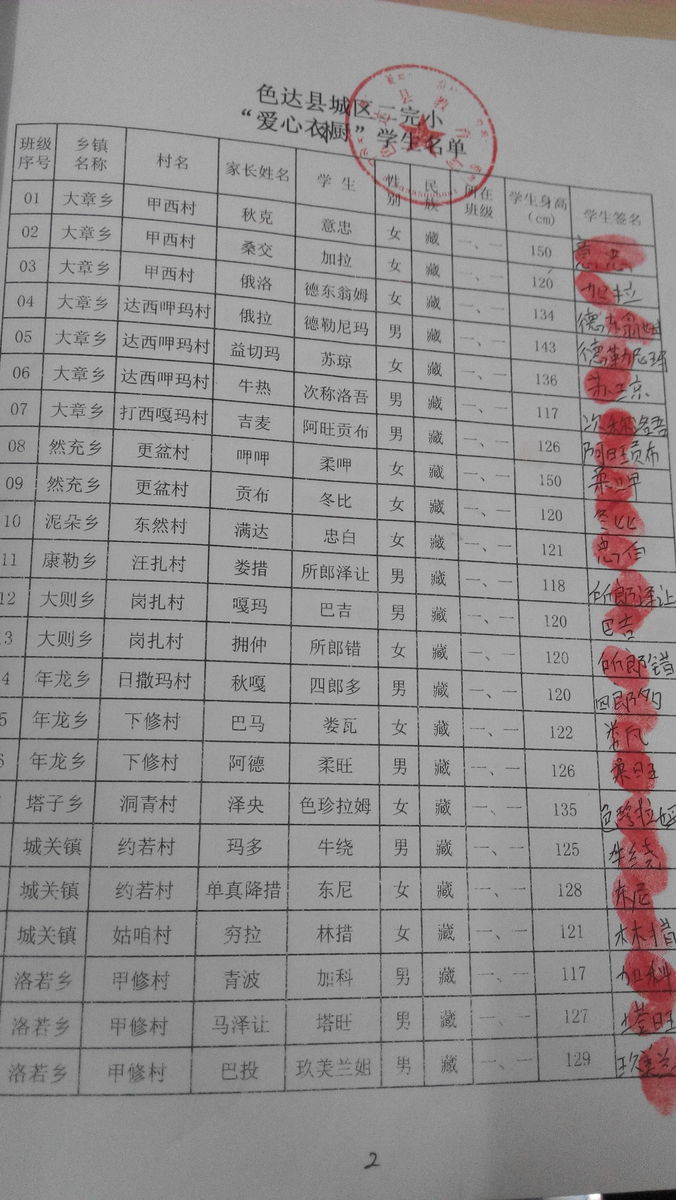 色达县城区二完小
“爱心衣橱”学生名单
班级序号 乡镇名称 村名 家长姓名 学生 性别 民族 所在班级 学生身高(cm) 学生签名
01 大章乡 甲西村 秋克 意忠 女 藏 一、一 150 意忠
02 大章乡 甲西村 桑交 加拉 女 藏 一、一 120 加拉
03 大章乡 甲西村 俄洛 德东翁姆 女 藏 一、一 134 德东翁姆
04 大章乡 达西呷玛村 俄拉 德勒尼玛 男 藏 一、一 143 德勒尼玛
05 大章乡 达西呷玛村 益切玛 苏琼 女 藏 一、一 136 苏琼
06 大章乡 达西呷玛村 牛热 次称洛吾 男 藏 一、一 117 次称洛吾
07 大章乡 打西嘎玛村 吉麦 阿旺贡布 男 藏 一、一 126 阿旺贡布
08 然充乡 更盆村 呷呷 柔呷 女 藏 一、一 150 柔呷
09 然充乡 更盆村 贡布 冬比 女 藏 一、一 120 冬比
10 泥朵乡 东然村 满达 忠白 女 藏 一、一 121 忠白
11 康勒乡 汪扎村 娄措 所郎泽让 男 藏 一、一 118 所郎泽让
12 大则乡 岗扎村 嘎玛 巴吉 男 藏 一、一 120 巴吉
3 大则乡 岗扎村 拥仲 所郎错 女 藏 一、一 120 所郎错
4 年龙乡 日撒玛村 秋嘎 四郎多 男 藏 一、一 120 四郎多
5 年龙乡 下修村 巴马 娄瓦 女 藏 一、一 122 娄瓦
年龙乡 下修村 阿德 柔旺 男 藏 一、一 126 柔旺
塔子乡 洞青村 泽央 色珍拉姆 女 藏 一、一 135 色珍拉姆
城关镇 约若村 玛多 牛绕 男 藏 一、一 125 牛绕
城关镇 约若村 单真降措 东尼 女 藏 一、一 128 东尼
城关镇 姑咱村 穷拉 林措 女 藏 一、一 121 林措
洛若乡 甲修村 青波 加科 男 藏 一、一 117 加科
洛若乡 甲修村 马泽让 塔旺 男 藏 一、一 127 塔旺
洛若乡 甲修村 巴投 玖美兰姐 男 藏 一、一 129 玖美兰
2